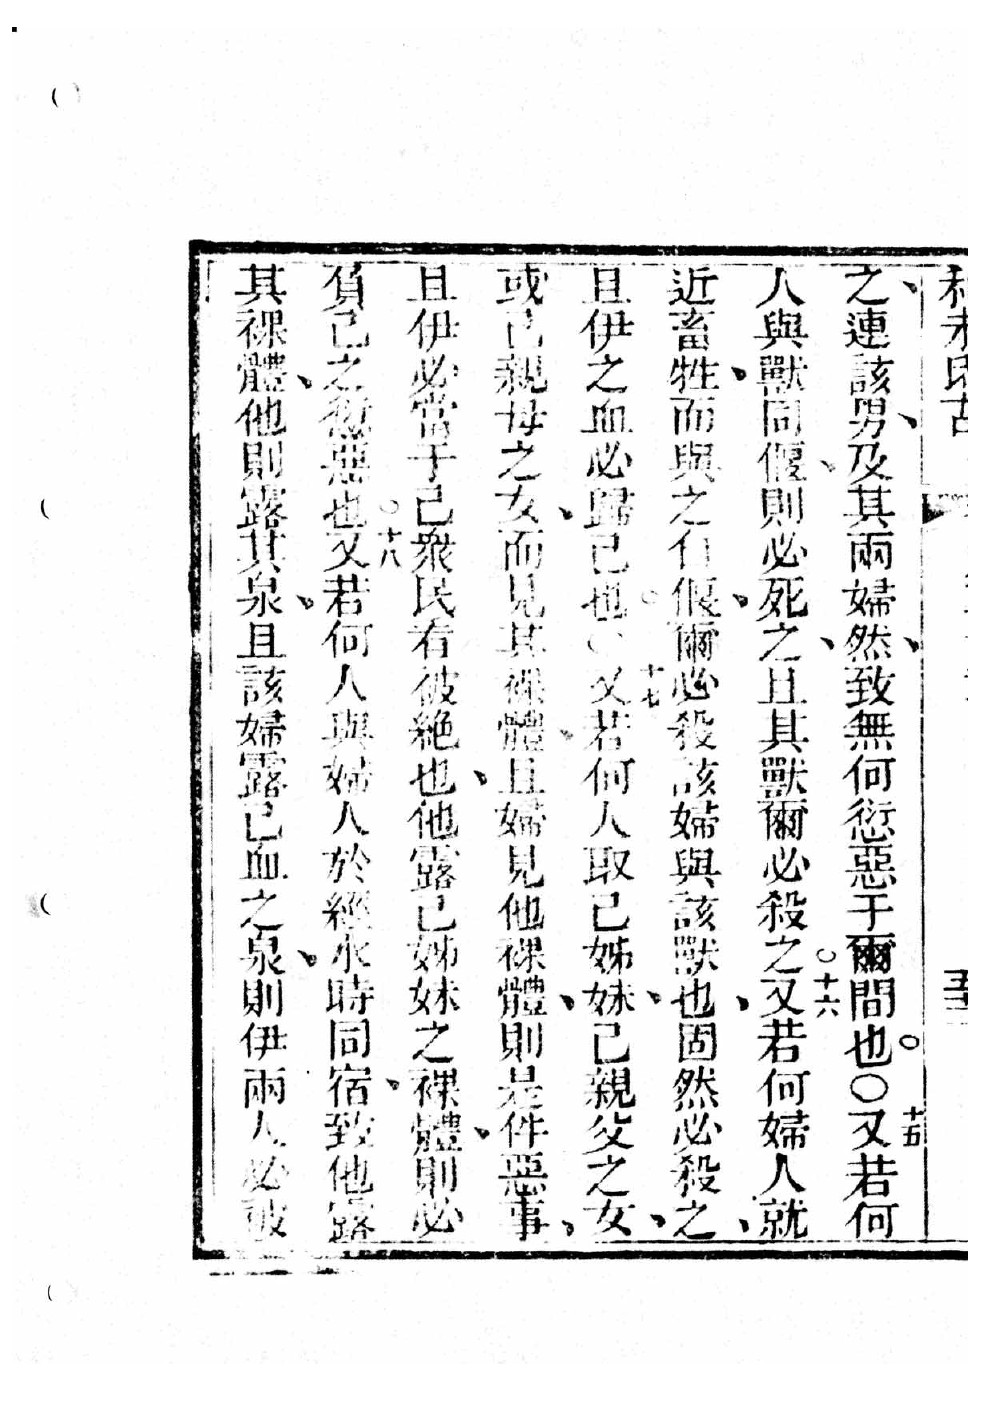 利未氏古
五
之連該男及其兩婦然致無何愆惡于爾間也○十五又若何
人與獸同偃則必死之且其獸爾必殺之○十六又若何婦人就
近畜牲而與之有偃爾必殺該婦與該獸也固然必殺之
且伊之血必歸己也○十七又若何人取己姊妹己親父之女
或己親母之女而見其裸體且婦見他裸體則是件惡事
且伊必當于己衆民看彼絶也他露己姊妹之裸體則必
負己之愆惡也○十八又若何人與婦人於經水時同宿致他露
其裸體他則露其泉且該婦露己血之泉則伊兩人必被